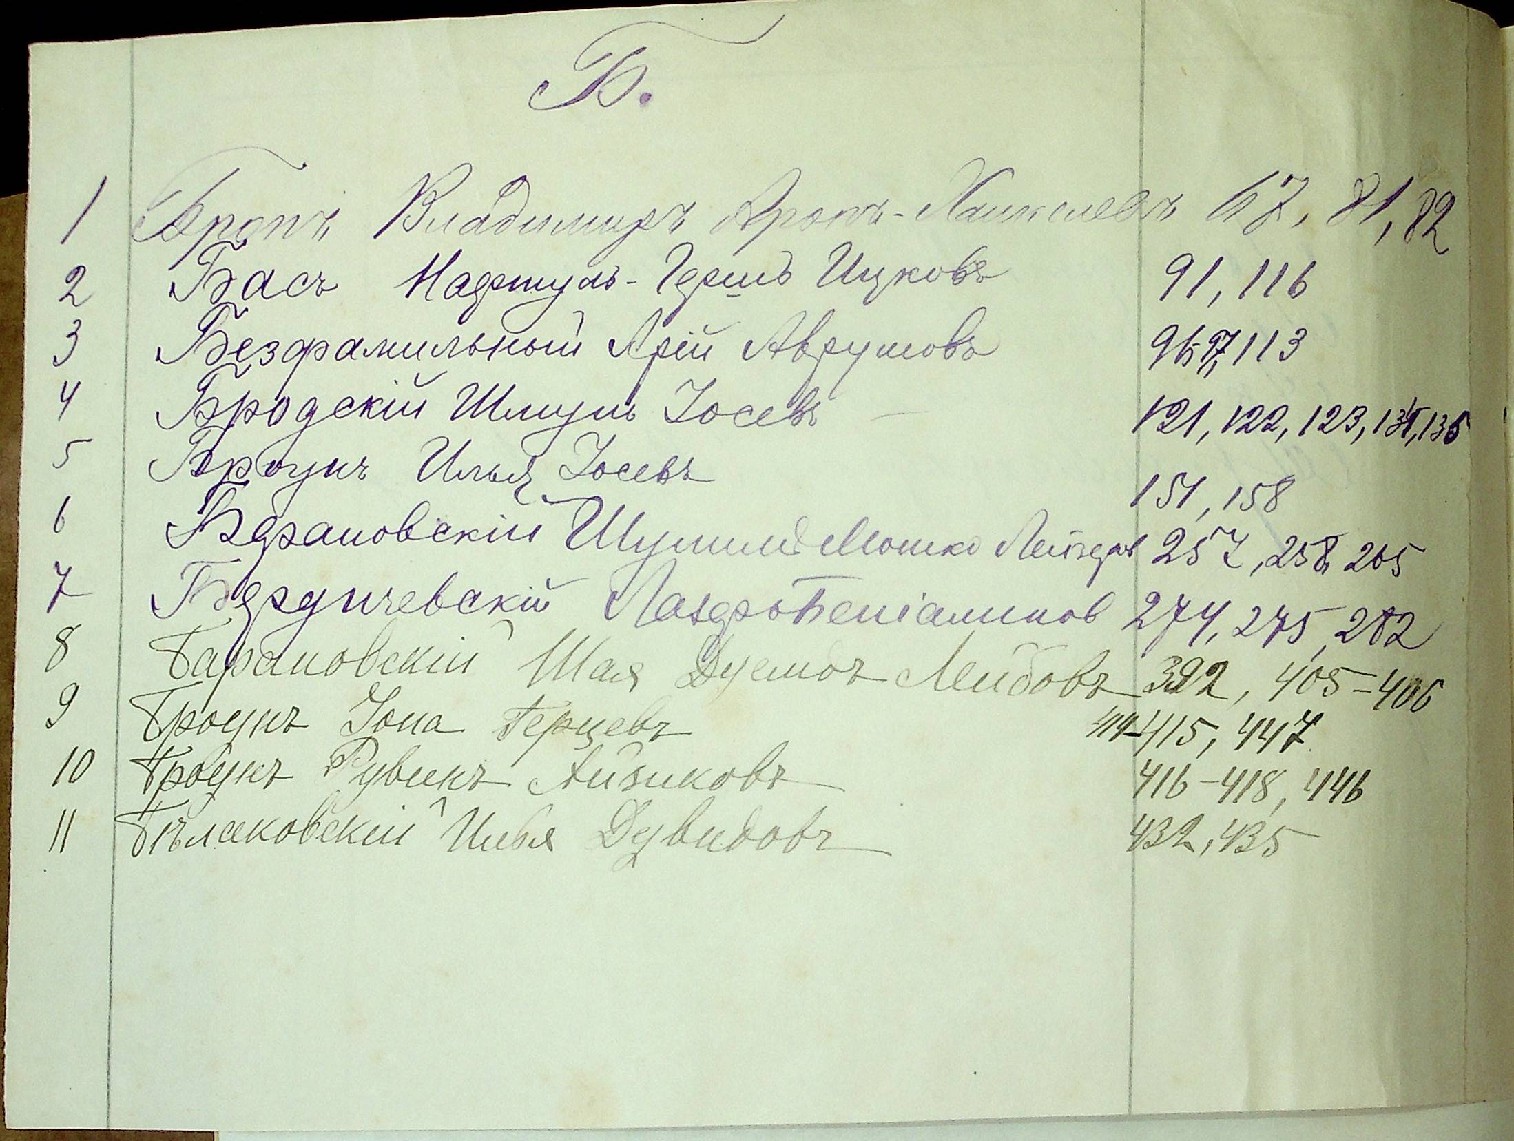 Б.
1 Бронъ Владимиръ Аронъ-Хаимелевъ 67, 81, 82
2 Басъ Нафтуль-Гершъ Ицковъ 91, 116
3 Безфамильный Арій Аврумовъ 113
4 Бродскій Шмуль Іосевъ 121, 122, 123, 135
5 Броунъ Илья Іосевъ 151, 158
6 Барановскій Мошко 257, 258, 265
7 Бердичевскій Лазарь Беніаминов 274, 275, 282
8 Барановскій Шая Лейбовъ 392, 405-406
9 Броунъ Іона Герцевъ 414-415, 447
10 Броунъ Рувинъ Айзиковъ 416-418, 446
11 Илья Дувидовъ 432, 435